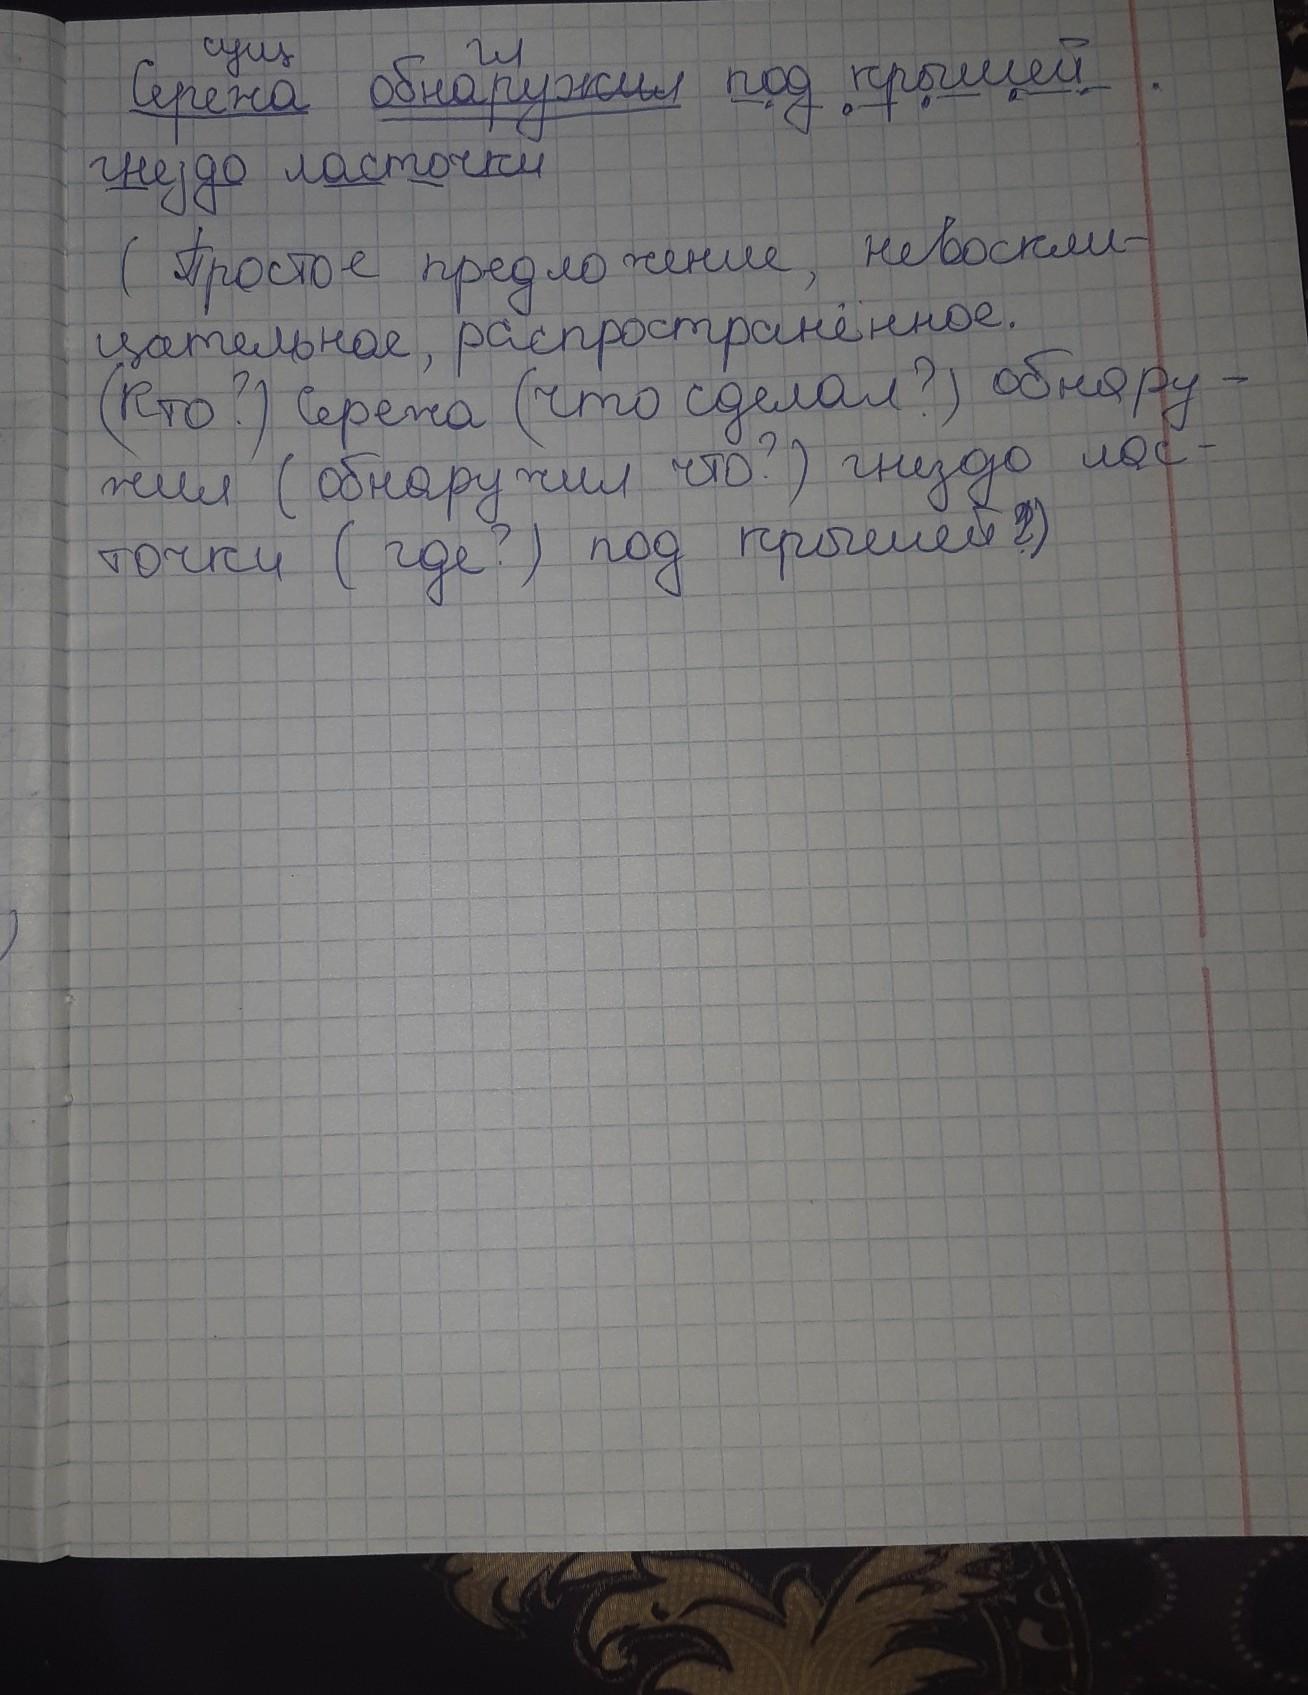 сущ гл
Сережа обнаружил под крышей .
гнездо ласточки
( Простое предложение, невоскли-
цательное, распространённое.
(Кто?) Сережа (что сделал?) обнару-
жил (обнаружил что?) гнездо лас-
точки ( где?) под крышей?)
)